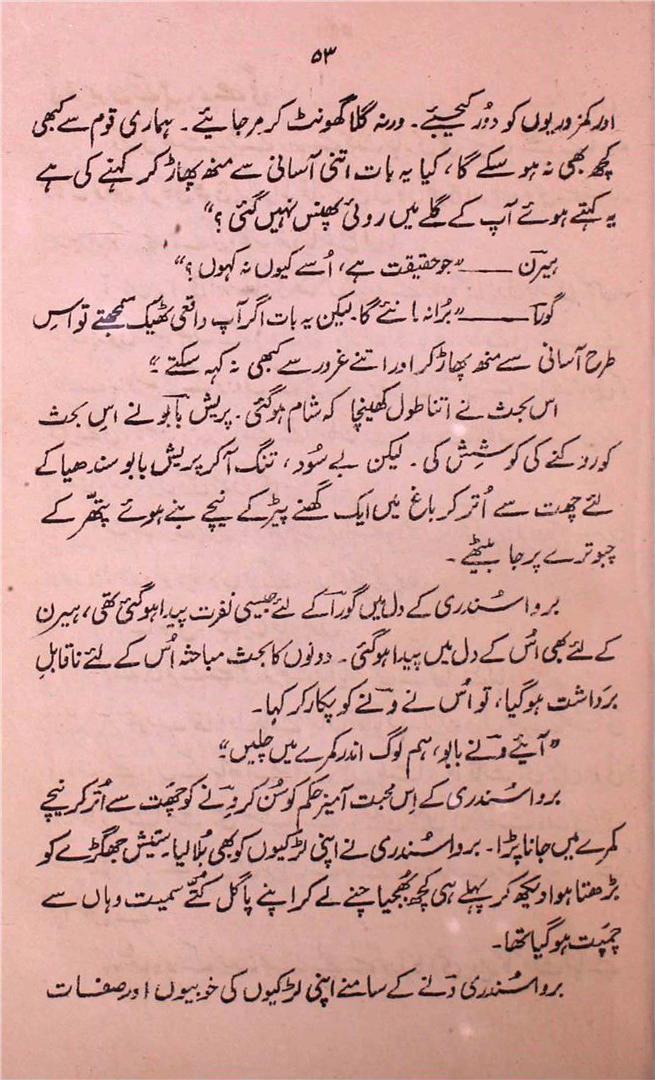 ۵۳
اور کمزوریوں کو دُور کیجئے۔ ورنہ گلا گھونٹ کر مر جائیے۔ ہماری قوم سے کبھی
کچھ بھی نہ ہو سکے گا، کیا یہ بات اتنی آسانی سے منھ پھاڑ کر کہنے کی ہے
یہ کہتے ہوئے آپ کے گلے میں روئی پھنس نہیں گئی؟“
ہیرن ــــــ ”جو حقیقت ہے، اُسے کیوں نہ کہوں؟“
گورا ــــــ ”بُرا نہ مانئے گا۔ لیکن یہ بات اگر آپ واقعی ٹھیک سمجھتے تو اس
طرح آسانی سے منھ پھاڑ کر اور اتنے غرور سے کبھی نہ کہہ سکتے“
اس بحث نے اتنا طول کھینچا کہ شام ہو گئی۔ پریش بابو نے اس بحث
کو روکنے کی کوشش کی۔ لیکن بے سُود، تنگ آکر پریش بابو سندھیا کے
لئے چھت سے اُتر کر باغ میں ایک گھنے پیڑ کے نیچے بنے ہوئے پتھّر کے
چبوترے پر جا بیٹھے۔
بروا سُندری کے دل میں گورا کے لئے جیسی نفرت پیدا ہو گئی تھی، ہیرن
کے لئے بھی اُس کے دل میں پیدا ہو گئی۔ دونوں کا بحث مباحثہ اُس کے لئے ناقابلِ
برداشت ہو گیا، تو اُس نے ونے کو پکار کر کہا۔
”آیئے ونے بابو، ہم لوگ اندر کمرے میں چلیں“
بروا سُندری کے اِس محبت آمیز حکم کو سُن کر ونے کو چھت سے اُتر کر نیچے
کمرے میں جانا پڑا۔ بروا سُندری نے اپنی لڑکیوں کو بھی بُلا لیا۔ ستیش جھگڑے کو
بڑھتا ہوا دیکھ کر پہلے ہی کچھ بُھجیا چنے لے کر اپنے پاگل کتّے سمیت وہاں سے
چمپت ہو گیا تھا۔
بروا سُندری ونے کے سامنے اپنی لڑکیوں کی خوبیوں اور صفات